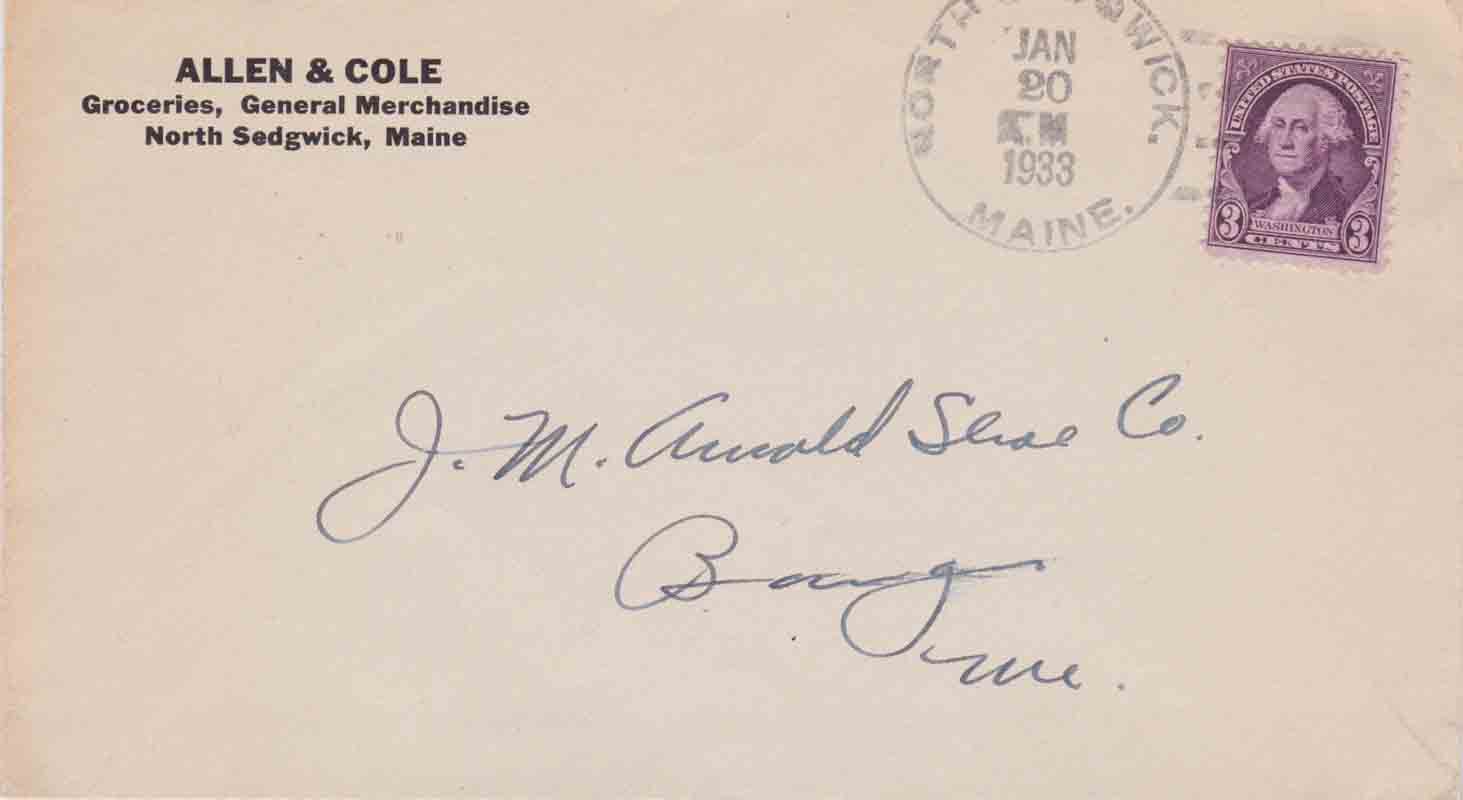 ALLEN & COLE
Groceries, General Merchandise
North Sedgwick, Maine
NORTH WICK.
JAN
20
M
1933
MAINE.
UNITED STATES POSTAGE
3 WASHINGTON 3
CENTS
J. M. Arnold Shoe Co.
Bangor
Me.